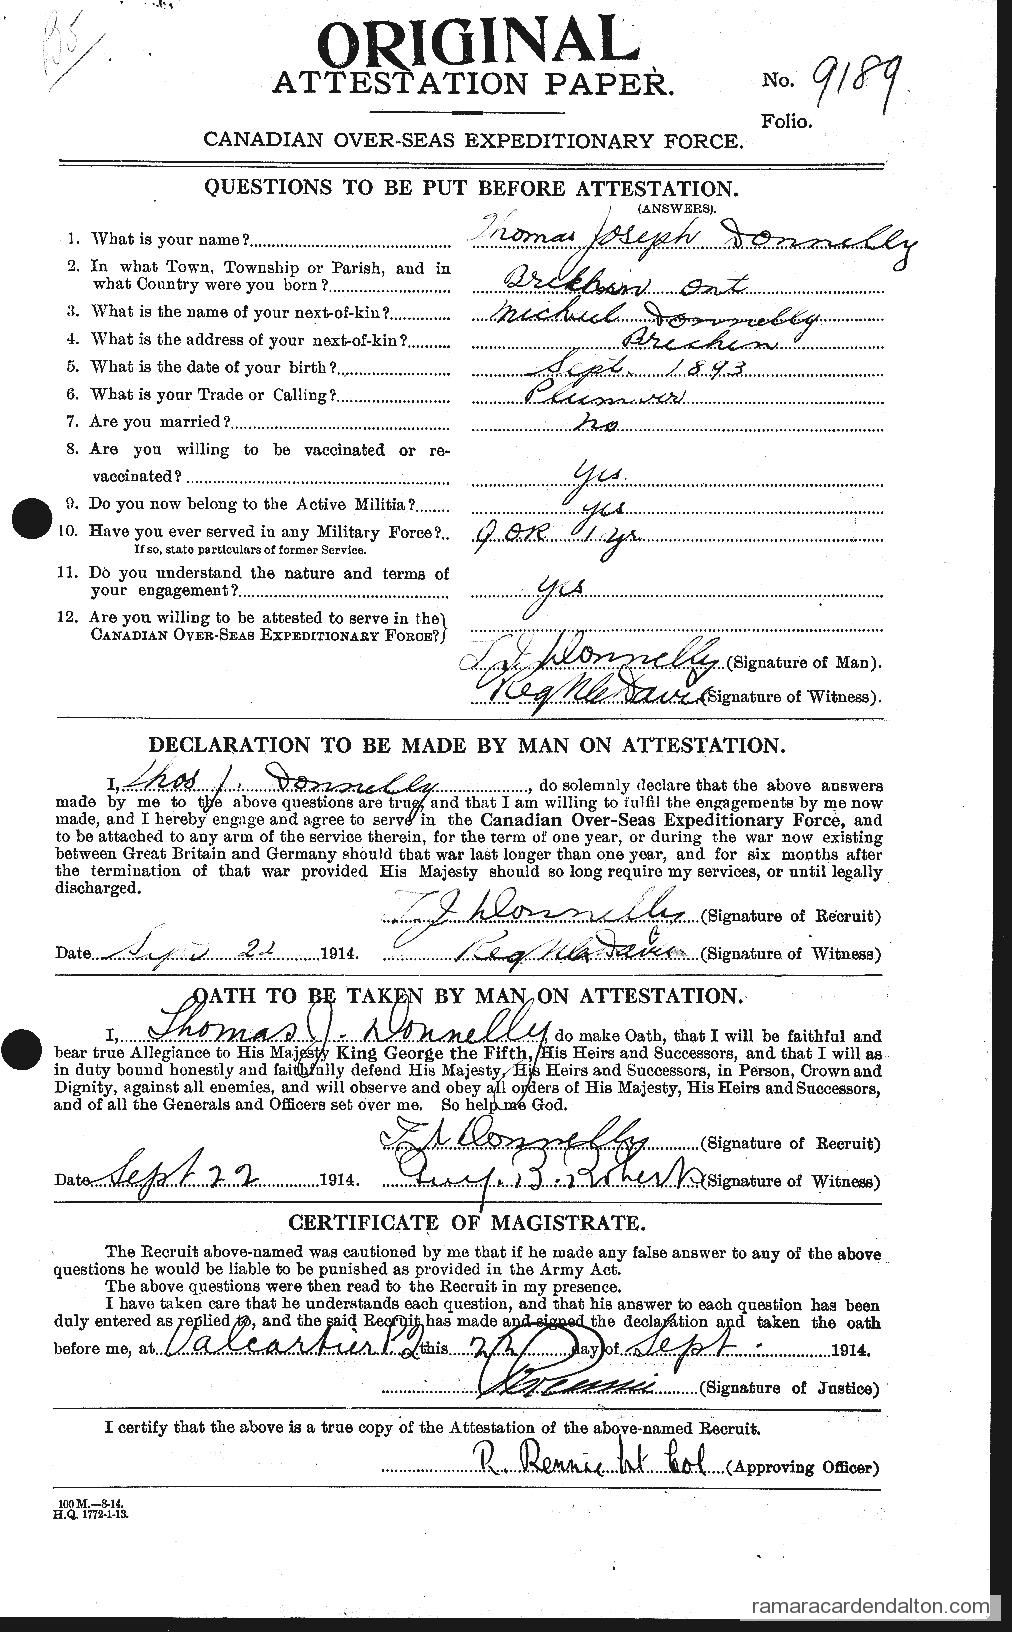 ORIGINAL
ATTESTATION PAPER.
No. 9189
Folio.
CANADIAN OVER-SEAS EXPEDITIONARY FORCE.
QUESTIONS TO BE PUT BEFORE ATTESTATION.
(ANSWERS).
1. What is your name? Thomas Joseph Donnelly
2. In what Town, Township or Parish, and in
what Country were you born? Brechin Ont
3. What is the name of your next-of-kin? Micheul Donnelly
4. What is the address of your next-of-kin? Brechin
5. What is the date of your birth? Sept. 1893
6. What is your Trade or Calling? Plumver
7. Are you married? no
8. Are you willing to be vaccinated or re-
vaccinated? yes.
9. Do you now belong to the Active Militia? yes
10. Have you ever served in any Military Force? QOR 1 yr
If so, state particulars of former Service.
11. Do you understand the nature and terms of
your engagement? yes
12. Are you willing to be attested to serve in the
CANADIAN OVER-SEAS EXPEDITIONARY FORCE?
T J Donnelly (Signature of Man).
Reg Davis (Signature of Witness).
DECLARATION TO BE MADE BY MAN ON ATTESTATION.
I, Thos J. Donnelly, do solemnly declare that the above answers
made by me to the above questions are true, and that I am willing to fulfil the engagements by me now
made, and I hereby engage and agree to serve in the Canadian Over-Seas Expeditionary Force, and
to be attached to any arm of the service therein, for the term of one year, or during the war now existing
between Great Britain and Germany should that war last longer than one year, and for six months after
the termination of that war provided His Majesty should so long require my services, or until legally
discharged.
T J Donnelly (Signature of Recruit)
Date Sep 22 1914. Reg Davis (Signature of Witness)
OATH TO BE TAKEN BY MAN ON ATTESTATION.
I, Thomas J. Donnelly do make Oath, that I will be faithful and
bear true Allegiance to His Majesty King George the Fifth, His Heirs and Successors, and that I will as
in duty bound honestly and faithfully defend His Majesty, His Heirs and Successors, in Person, Crown and
Dignity, against all enemies, and will observe and obey all orders of His Majesty, His Heirs and Successors,
and of all the Generals and Officers set over me. So help me God.
T J Donnelly (Signature of Recruit)
Date Sept 22 1914. Guy. B. Roberts (Signature of Witness)
CERTIFICATE OF MAGISTRATE.
The Recruit above-named was cautioned by me that if he made any false answer to any of the above
questions he would be liable to be punished as provided in the Army Act.
The above questions were then read to the Recruit in my presence.
I have taken care that he understands each question, and that his answer to each question has been
duly entered as replied to, and the said Recruit has made and signed the declaration and taken the oath
before me, at Valcartier P2 this 22 day of Sept. 1914.
R Rennie (Signature of Justice)
I certify that the above is a true copy of the Attestation of the above-named Recruit.
R. Rennie Lt Col (Approving Officer)
100 M.—8-14.
H.Q. 1772-1-13.
ramaracardendalton.com